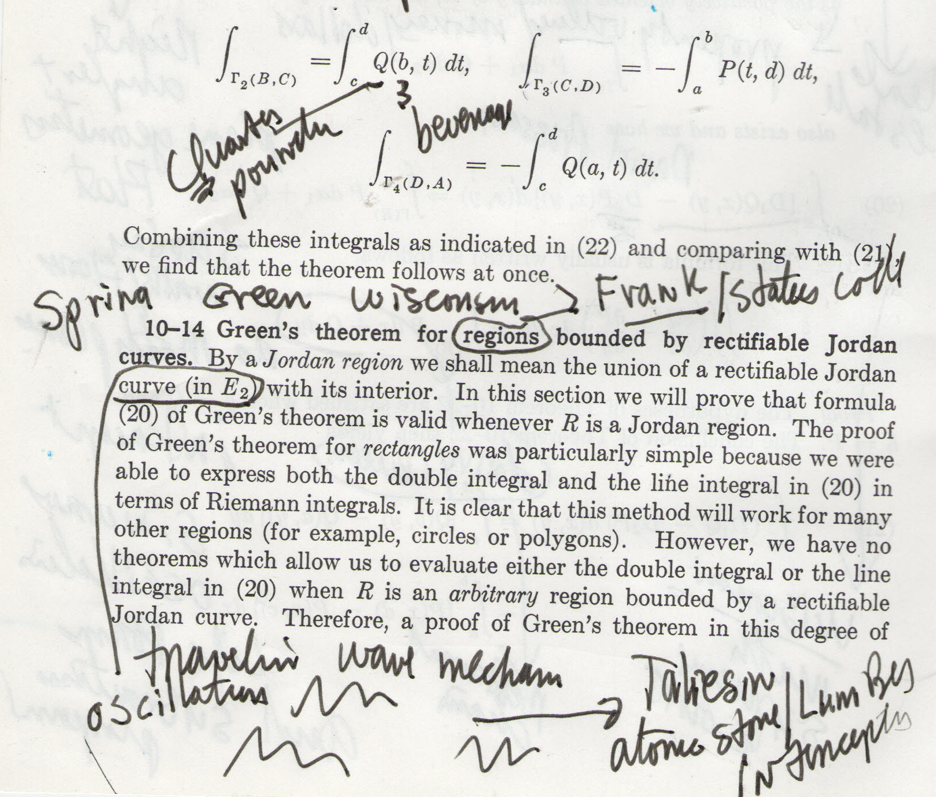 ∫_{Γ₂(B,C)} = ∫_c^d Q(b, t) dt, ∫_{Γ₃(C,D)} = −∫_a^b P(t, d) dt,
3
∫_{Γ₄(D,A)} = −∫_c^d Q(a, t) dt.
Combining these integrals as indicated in (22) and comparing with (21),
we find that the theorem follows at once.
Spring Green Wisconsin → Frank / states
10–14 Green's theorem for regions bounded by rectifiable Jordan
curves. By a Jordan region we shall mean the union of a rectifiable Jordan
curve (in E₂) with its interior. In this section we will prove that formula
(20) of Green's theorem is valid whenever R is a Jordan region. The proof
of Green's theorem for rectangles was particularly simple because we were
able to express both the double integral and the line integral in (20) in
terms of Riemann integrals. It is clear that this method will work for many
other regions (for example, circles or polygons). However, we have no
theorems which allow us to evaluate either the double integral or the line
integral in (20) when R is an arbitrary region bounded by a rectifiable
Jordan curve. Therefore, a proof of Green's theorem in this degree of
wave mecham
Taliesin
stone